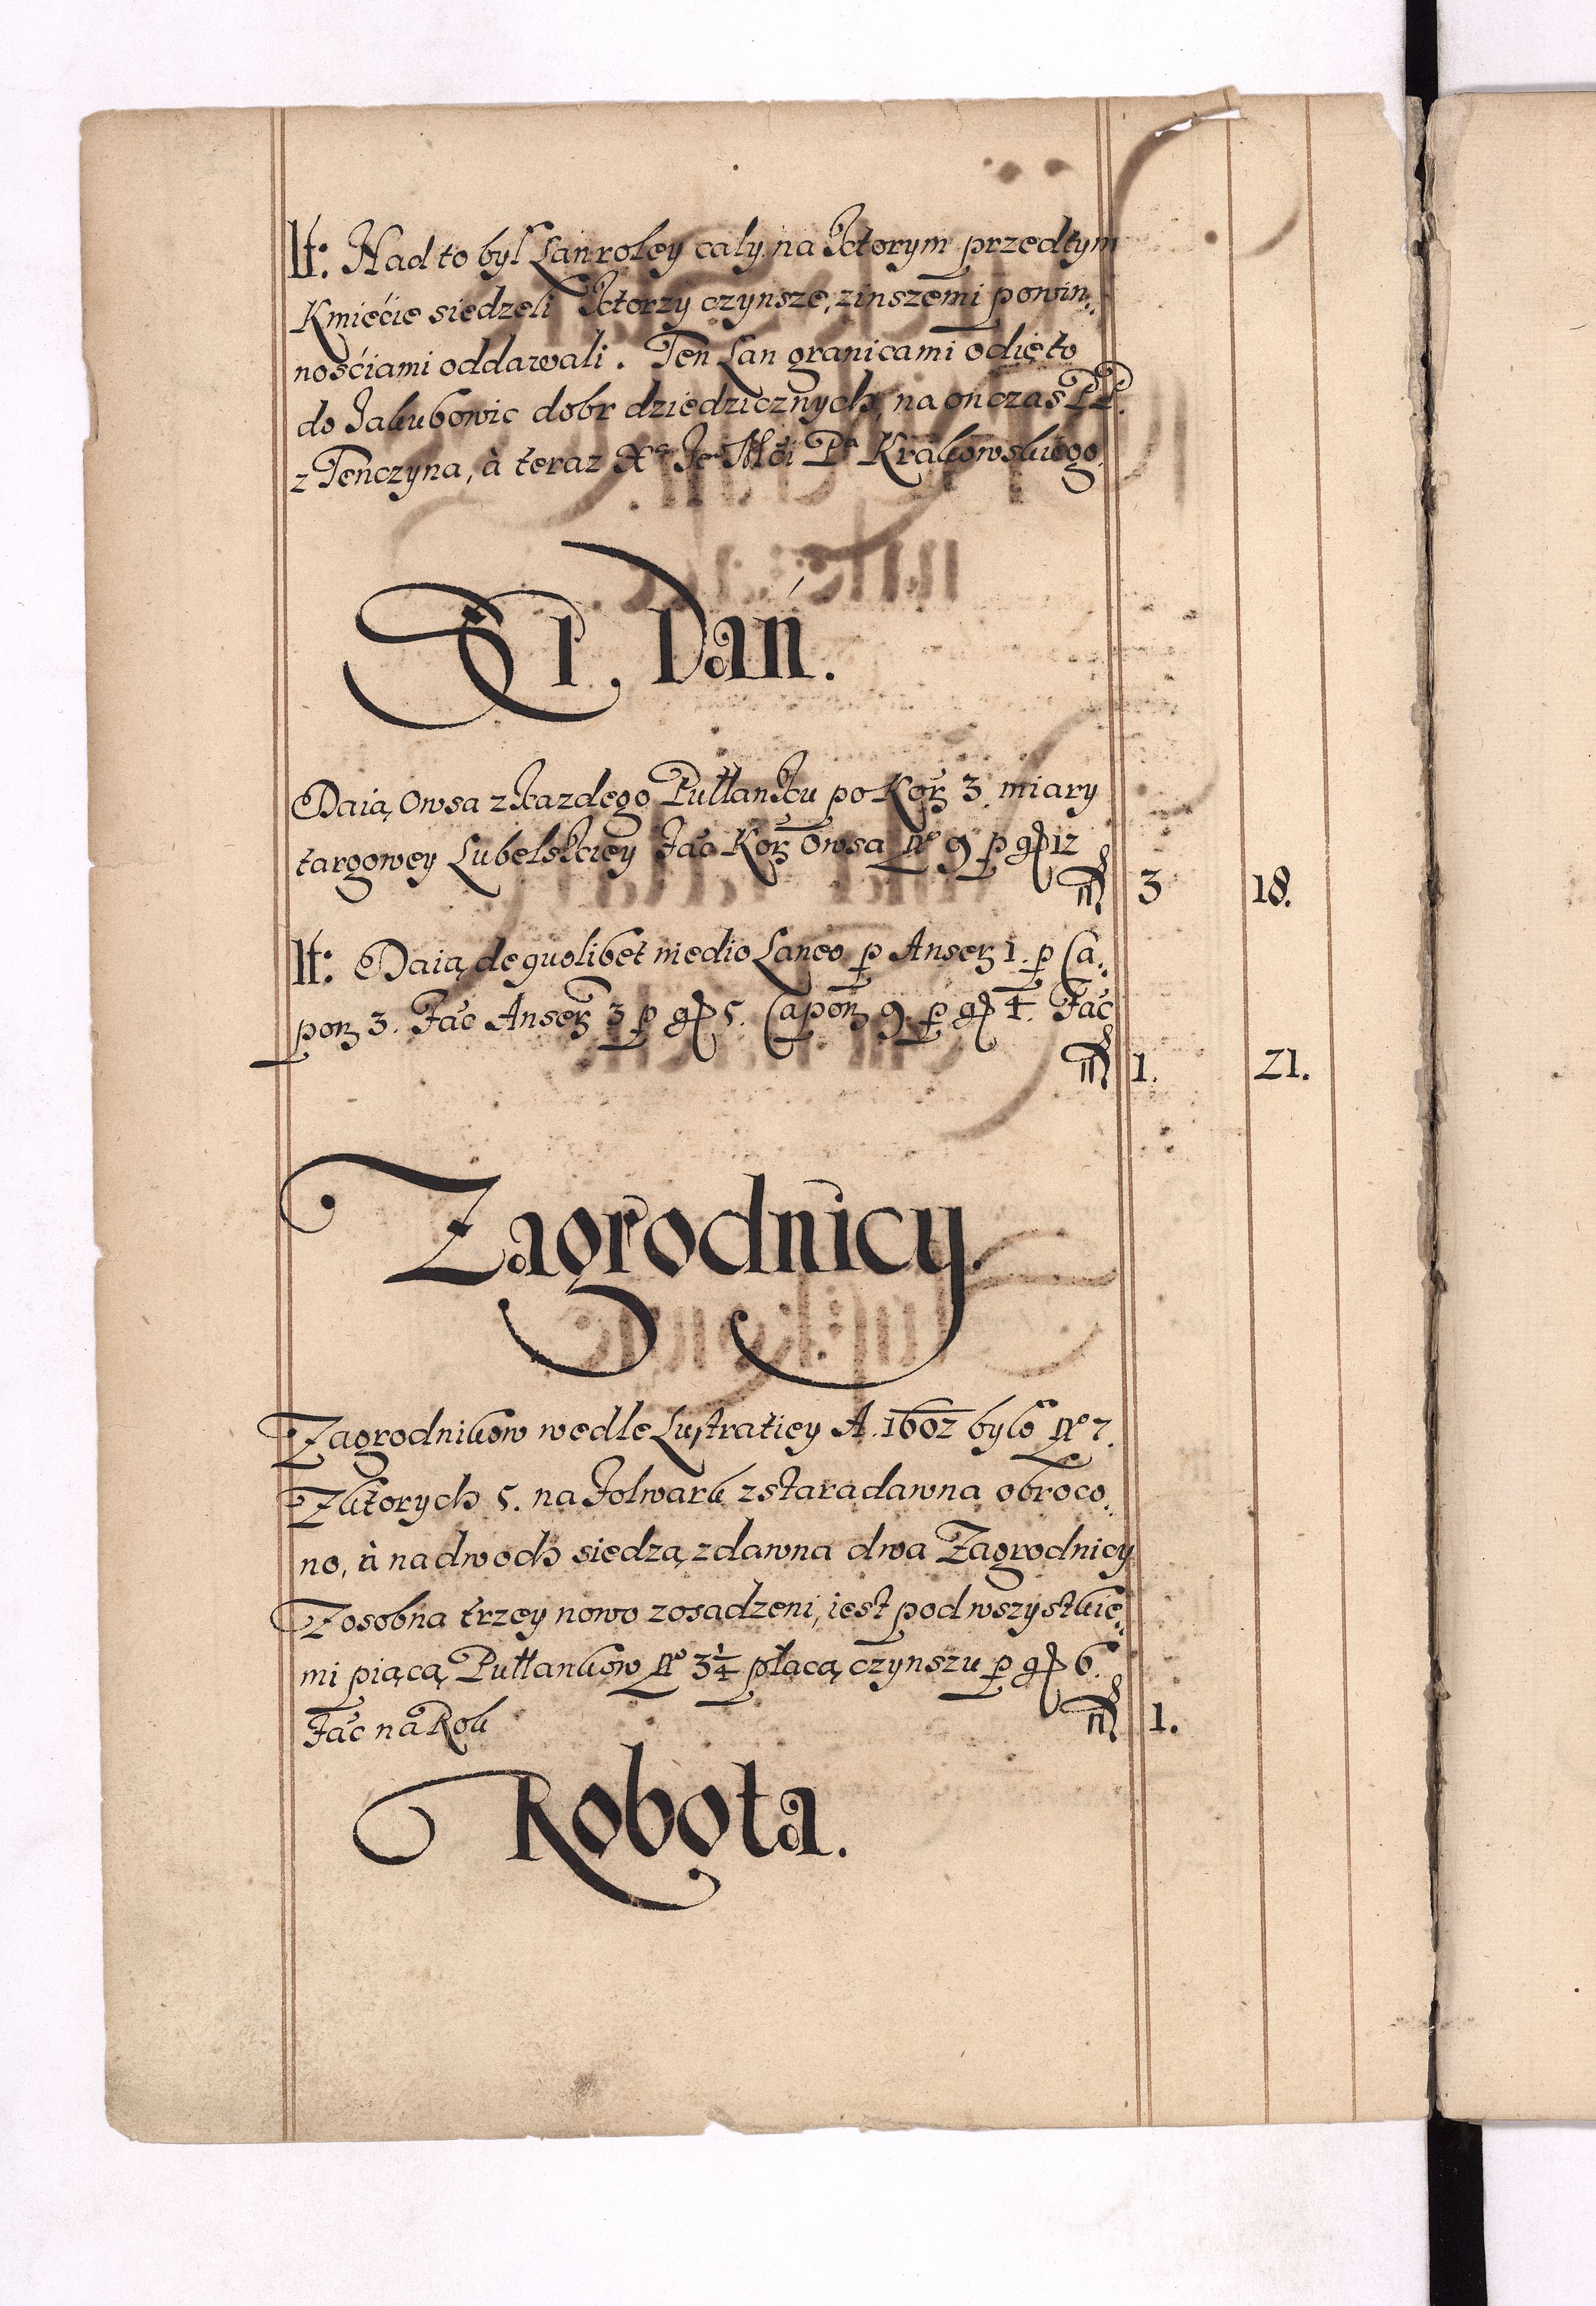 It: Nad to był Łan roley cały na ktorym przedtym
Kmiećie siedzeli ktorzy czynsze, z inszemi powin:
nośćiami oddawali. Ten Łan granicami odięto
do Jakubowic dobr dziedzicznych, na on czas PP.
z Tenczyna, à teraz Xa Je° Mći Pa Krakowskiego.
Dań.
Daią Owsa z kazdego Pułłanku po Korz 3. miary
targowey Lubelskiey Fać Korz Owsa No 9 p gr 12
3 18.
It: Daią de quolibet medio Laneo p Anser 1. p Ca:
pon 3. Fać Anser 3 p gr 5. Capon 9 p gr 4. Fać
1. 21.
Zagrodnicy.
Zagrodnikow wedle Lustratiey A. 1602 było No 7.
Z ktorych 5. na Folwark z staradawna obroco:
no, à na dwoch siedzą z dawna dwa Zagrodnicy
Z osobna trzey nowo zosadzeni, iest pod wszystkie:
mi piącą Pułłankow No 3 1/4 płacą czynszu p gr 6.
Fać na Rok 1.
Robota.